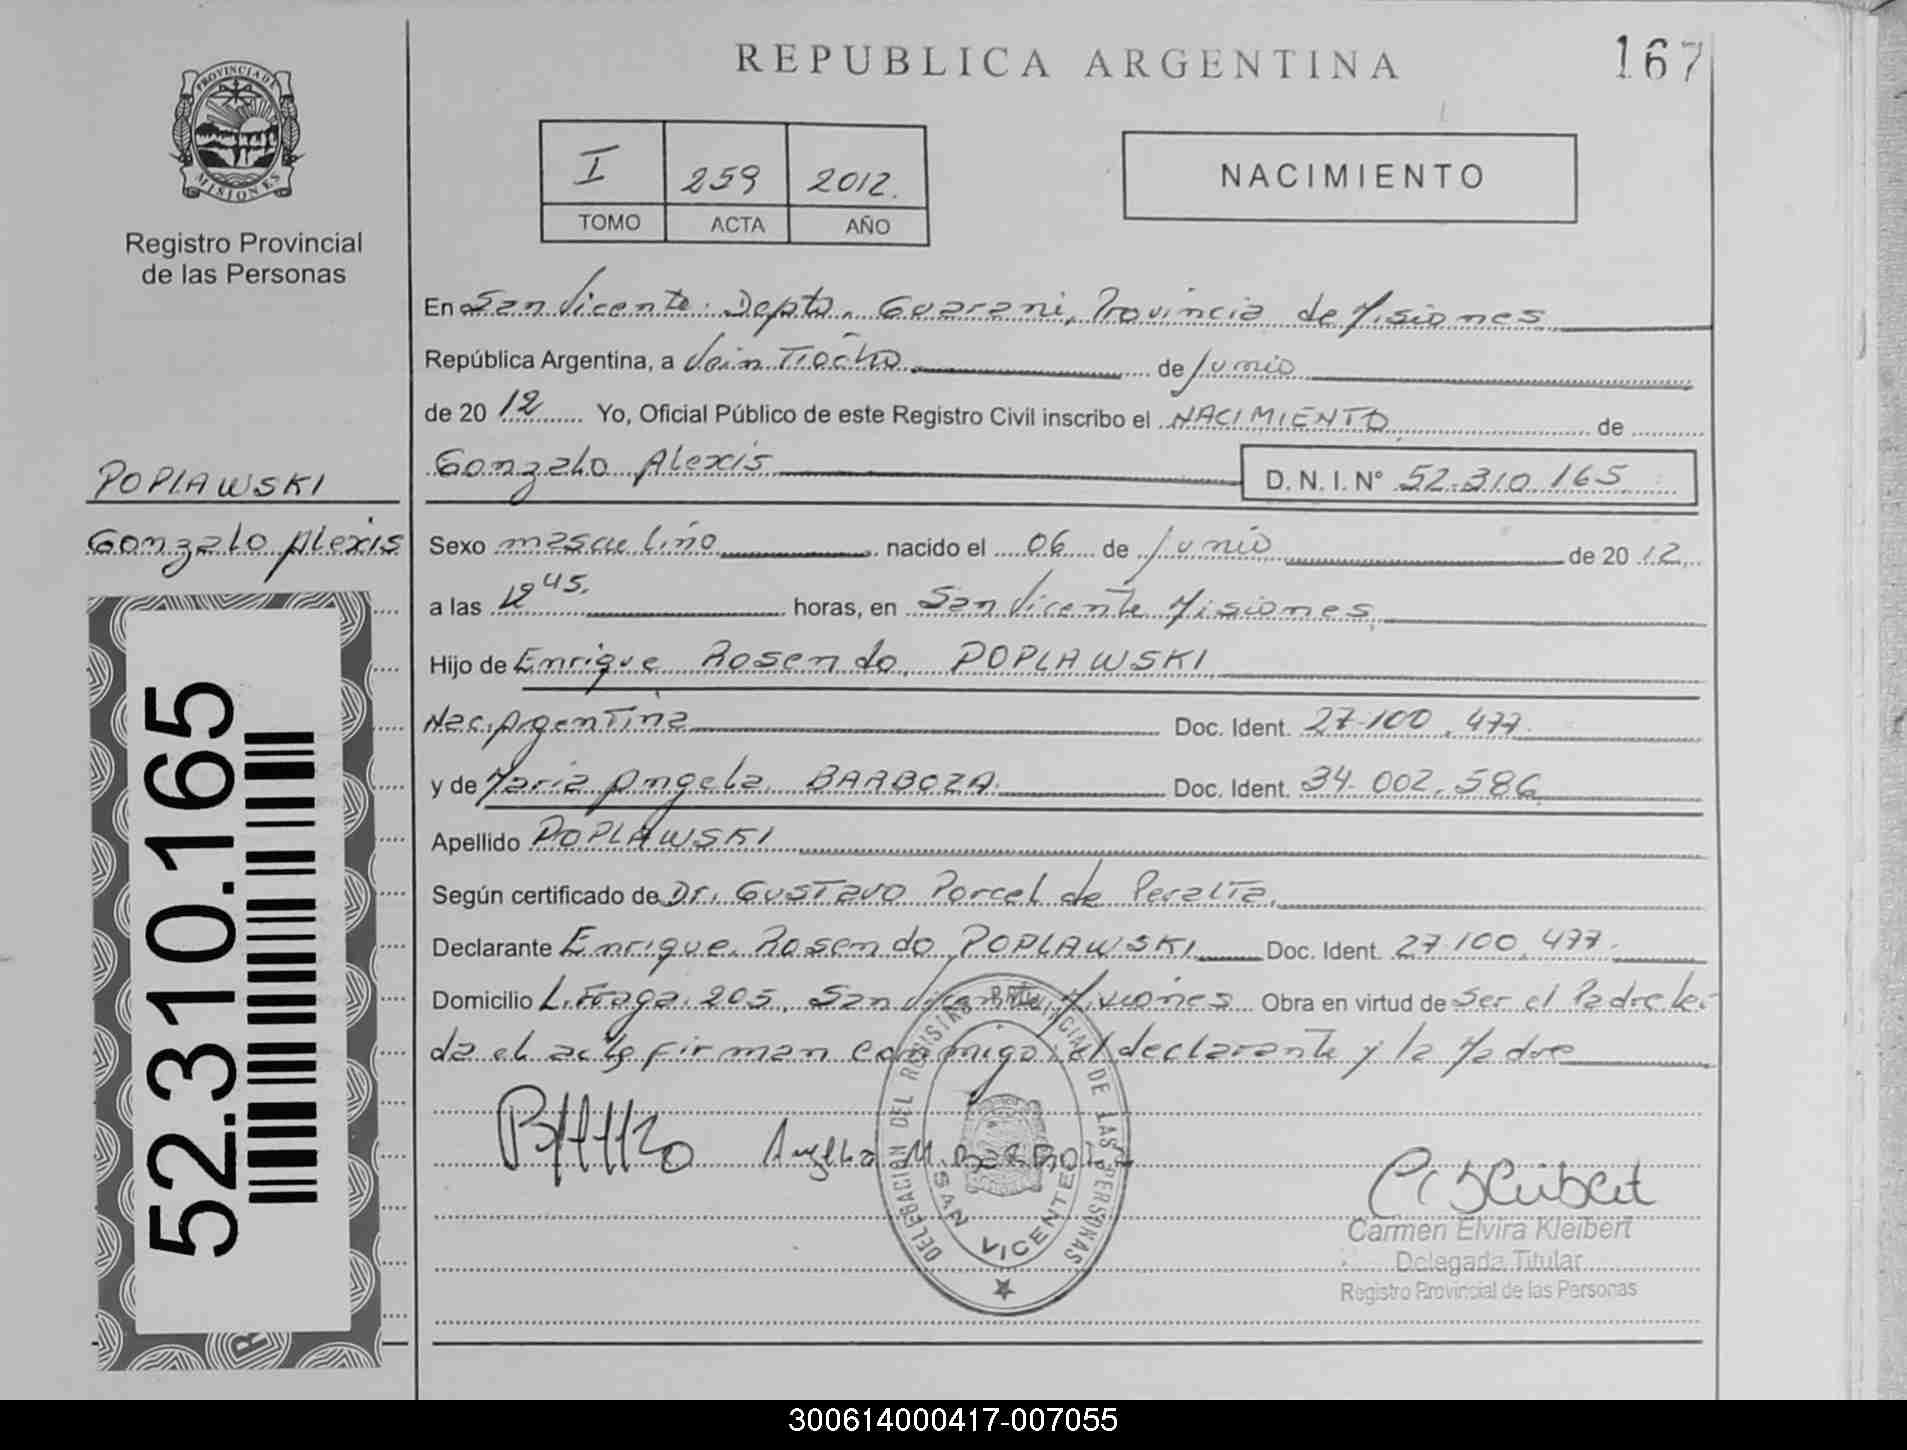 REPUBLICA ARGENTINA
167
PROVINCIA DE
MISIONES
Registro Provincial
de las Personas
I 259 2012.
TOMO ACTA AÑO
NACIMIENTO
En San Vicente. Depto. Guarani, Provincia de Misiones
República Argentina, a Veintiocho de Junio
de 20 12 Yo, Oficial Público de este Registro Civil inscribo el NACIMIENTO de
Gonzalo Alexis D. N. I. N° 52.310.165
POPLAWSKI
Gonzalo Alexis
Sexo masculino nacido el 06 de Junio de 20 12
a las 12 45. horas, en San Vicente Misiones
Hijo de Enrique Rosendo POPLAWSKI
Nac. Argentina Doc. Ident. 27.100.477.
y de Maria Angela BARBOZA. Doc. Ident. 34.002.586
Apellido POPLAWSKI
Según certificado de Dr. Gustavo Porcel de Peralta.
Declarante Enrique Rosendo POPLAWSKI Doc. Ident. 27.100.477.
Domicilio L. Fraga 205, San Vicente Misiones Obra en virtud de ser el Padre lei
da el acta firman conmigo el declarante y la Madre
52.310.165
Angela M. BARBOZA
DELEGACION DEL REGISTRO PROVINCIAL DE LAS PERSONAS
SAN VICENTE
Carmen Elvira Kleibert
Delegada Titular
Registro Provincial de las Personas
300614000417-007055